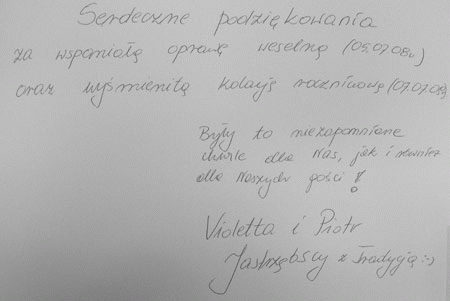 Serdeczne podziękowania
za wspaniałą oprawę weselną (05.07.08r.)
oraz wyśmienitą kolację rocznicową (07.07.08)
Były to niezapomniane
chwile dla Nas, jak i również
dla Naszych gości!
Violetta i Piotr
Jastrzębscy z Tradycją :-)